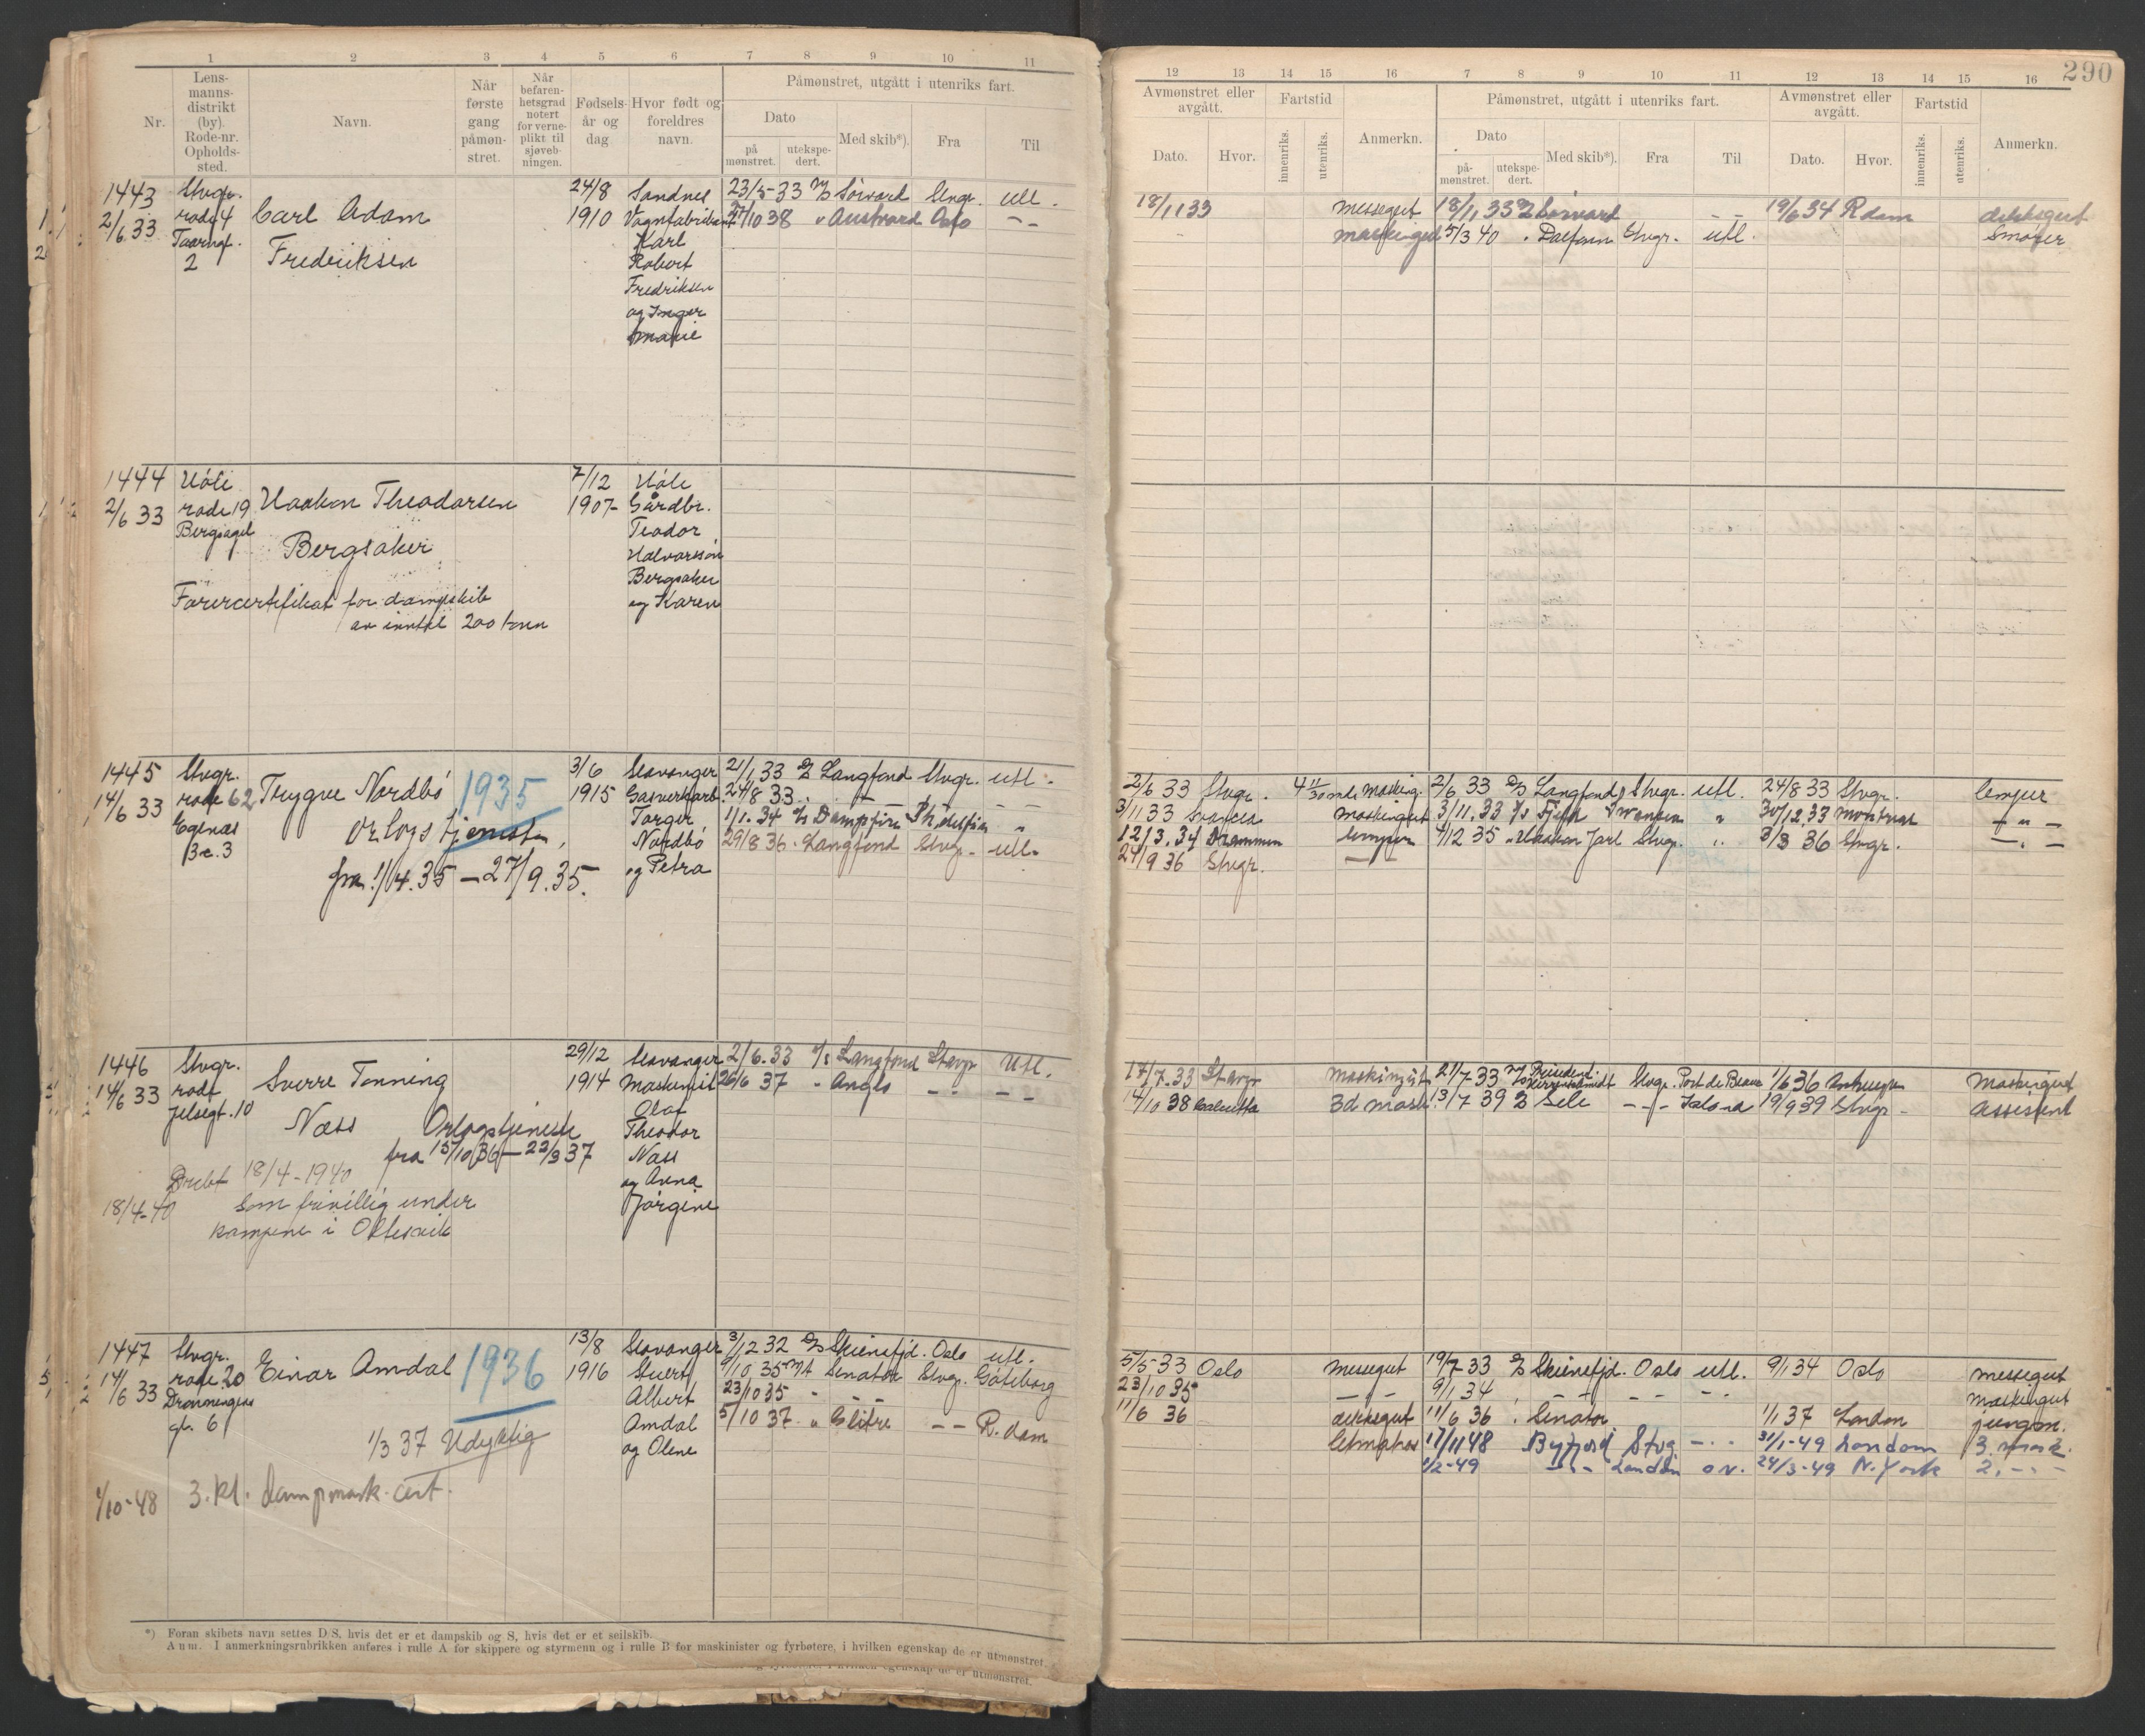 1 2 3 4 5 6 7 8 9 10 11
Nr. Lens-manns-distrikt (by). Rode-nr. Opholds-sted. Navn. Når første gang påmøn-stret. Når befaren-hetsgrad notert for verne-plikt til sjøveb-ningen. Fødsels-år og dag Hvor født og foreldres navn.
Påmønstret, utgått i utenriks fart.
Dato på mønstret. utekspe-dert. Med skib*). Fra Til
1443 Stvgr. 24/8 Sandnes 23/5-33 Sørvard Stvgr. utl.
2/6 33 rode 4 Carl Adam 1910 Vognfabrikant 27/10 38 " Austvard Oslo – –
2 Fredriksen Karl
Robert
Fredriksen
og Inger
Marie
1444 Høle 7/12 Høle
2/6 33 rode 19 Haakon Theodorsen 1907 Gårdbr.
Bergsagel Bergsaker Teodor
Halvorsen
Bergsaker
Førercertifikat for dampskib og Karen
av inntil 200 tonn
1445 Stvgr. 3/6 Stavanger 21/1 33 Langfond Stvgr. utl.
14/6 33 rode 62 Trygve Nordbö 1935 1915 Gasverkarb. 24/8 33
Egenæs Orlogstjeneste Torger 1/1.34 Ph.delfia "
3 Nordbö 29/8 36 . Langfond Stvgr. utl.
fra 1/4.35 – 27/9.35. og Petra
1446 Stvgr. 29/12 Stavanger 2/6.33 Langfond Stavgr Utl.
14/6 33 rode Sverre Tonning 1914 Maskinist 26/6 37 " Anglo – – –
Jelsegt. 10 Olaf
Næss Orlogstjeneste Theodor
fra 15/10 36 – 22/3 37 Næss
Drebt 18/4-1940 og Anna
18/4-40 Som frivillig under Jörgine
kampene i Oltesvik
1447 Stvgr. 13/8 Stavanger 3/12 32 Skiensfjd. Oslo utl.
14/6 33 rode 20 Einar Amdal 1936 1916 Stuert 9/10 35 Senator Stvgr. Göteborg
Dronningens Albert 23/10 35
gt. 6 Amdal 5/10 37 " Glitre – – R.dam
1/3 37 Udyktig og Olene
1/10-48 3. kl. dampmask. cert.
*) Foran skibets navn settes D/S, hvis det er et dampskib og S, hvis det er et seilskib.
Anm. I anmerkningsrubrikken anføres i rulle A for skippere og styrmenn og i rulle B for maskinister og fyrbøtere, i hvilken egenskap de er utmønstret.
290
12 13 14 15 16 7 8 9 10 11 12 13 14 15 16
Avmønstret eller avgått. Fartstid Anmerkn. Påmønstret, utgått i utenriks fart. Avmønstret eller avgått. Fartstid Anmerkn.
Dato. Hvor. innenriks. utenriks. Dato på-mønstret. utekspe-dert. Med skib*). Fra Til Dato. Hvor. innenriks. utenriks.
18/1 33 messegut 18/1 33 Sørvard – – 19/6 34 R.dam dekksgut
maskingut 5/3 40 . Dalfonn Stvgr. utl. Smører
2/6 33 Stvgr. 2/6 33 D/S Langfond Stvgr. utl. 24/8 33 Stvgr. lemper
3/11 33 Swansea maskingut 3/11.33 Swansea " 30/12.33 Montreal – " –
12/3.34 Drammen lemper 4/12 35 " Haakon Jarl Stvgr. " 3/3 36 Stvgr. – . –
24/9 36 Stvgr. – –
17/7.33 Stavgr maskingut 21/7 33 Stvgr. Port de Bouc 1/6 36 Maskingut
14/10 38 Calcutta 3d mask. 13/7 39 Sele – – 19/9 39 Stvgr – assistent
5/5 33 Oslo messegut 19/7 33 Skiensfjd. Oslo utl. 9/1 34 Oslo messegut
23/10 35 – – 9/1 34 – – – – – maskingut
11/6 36 dekksgut 11/6 36 . Senator 1/1 37 London jungm.
letmatros 17/11 48 Byfjord Stvg – . . 31/1-49 London 3. mask.
1/2-49 – . – London o.N. 24/3-49 N. York 2. – . –